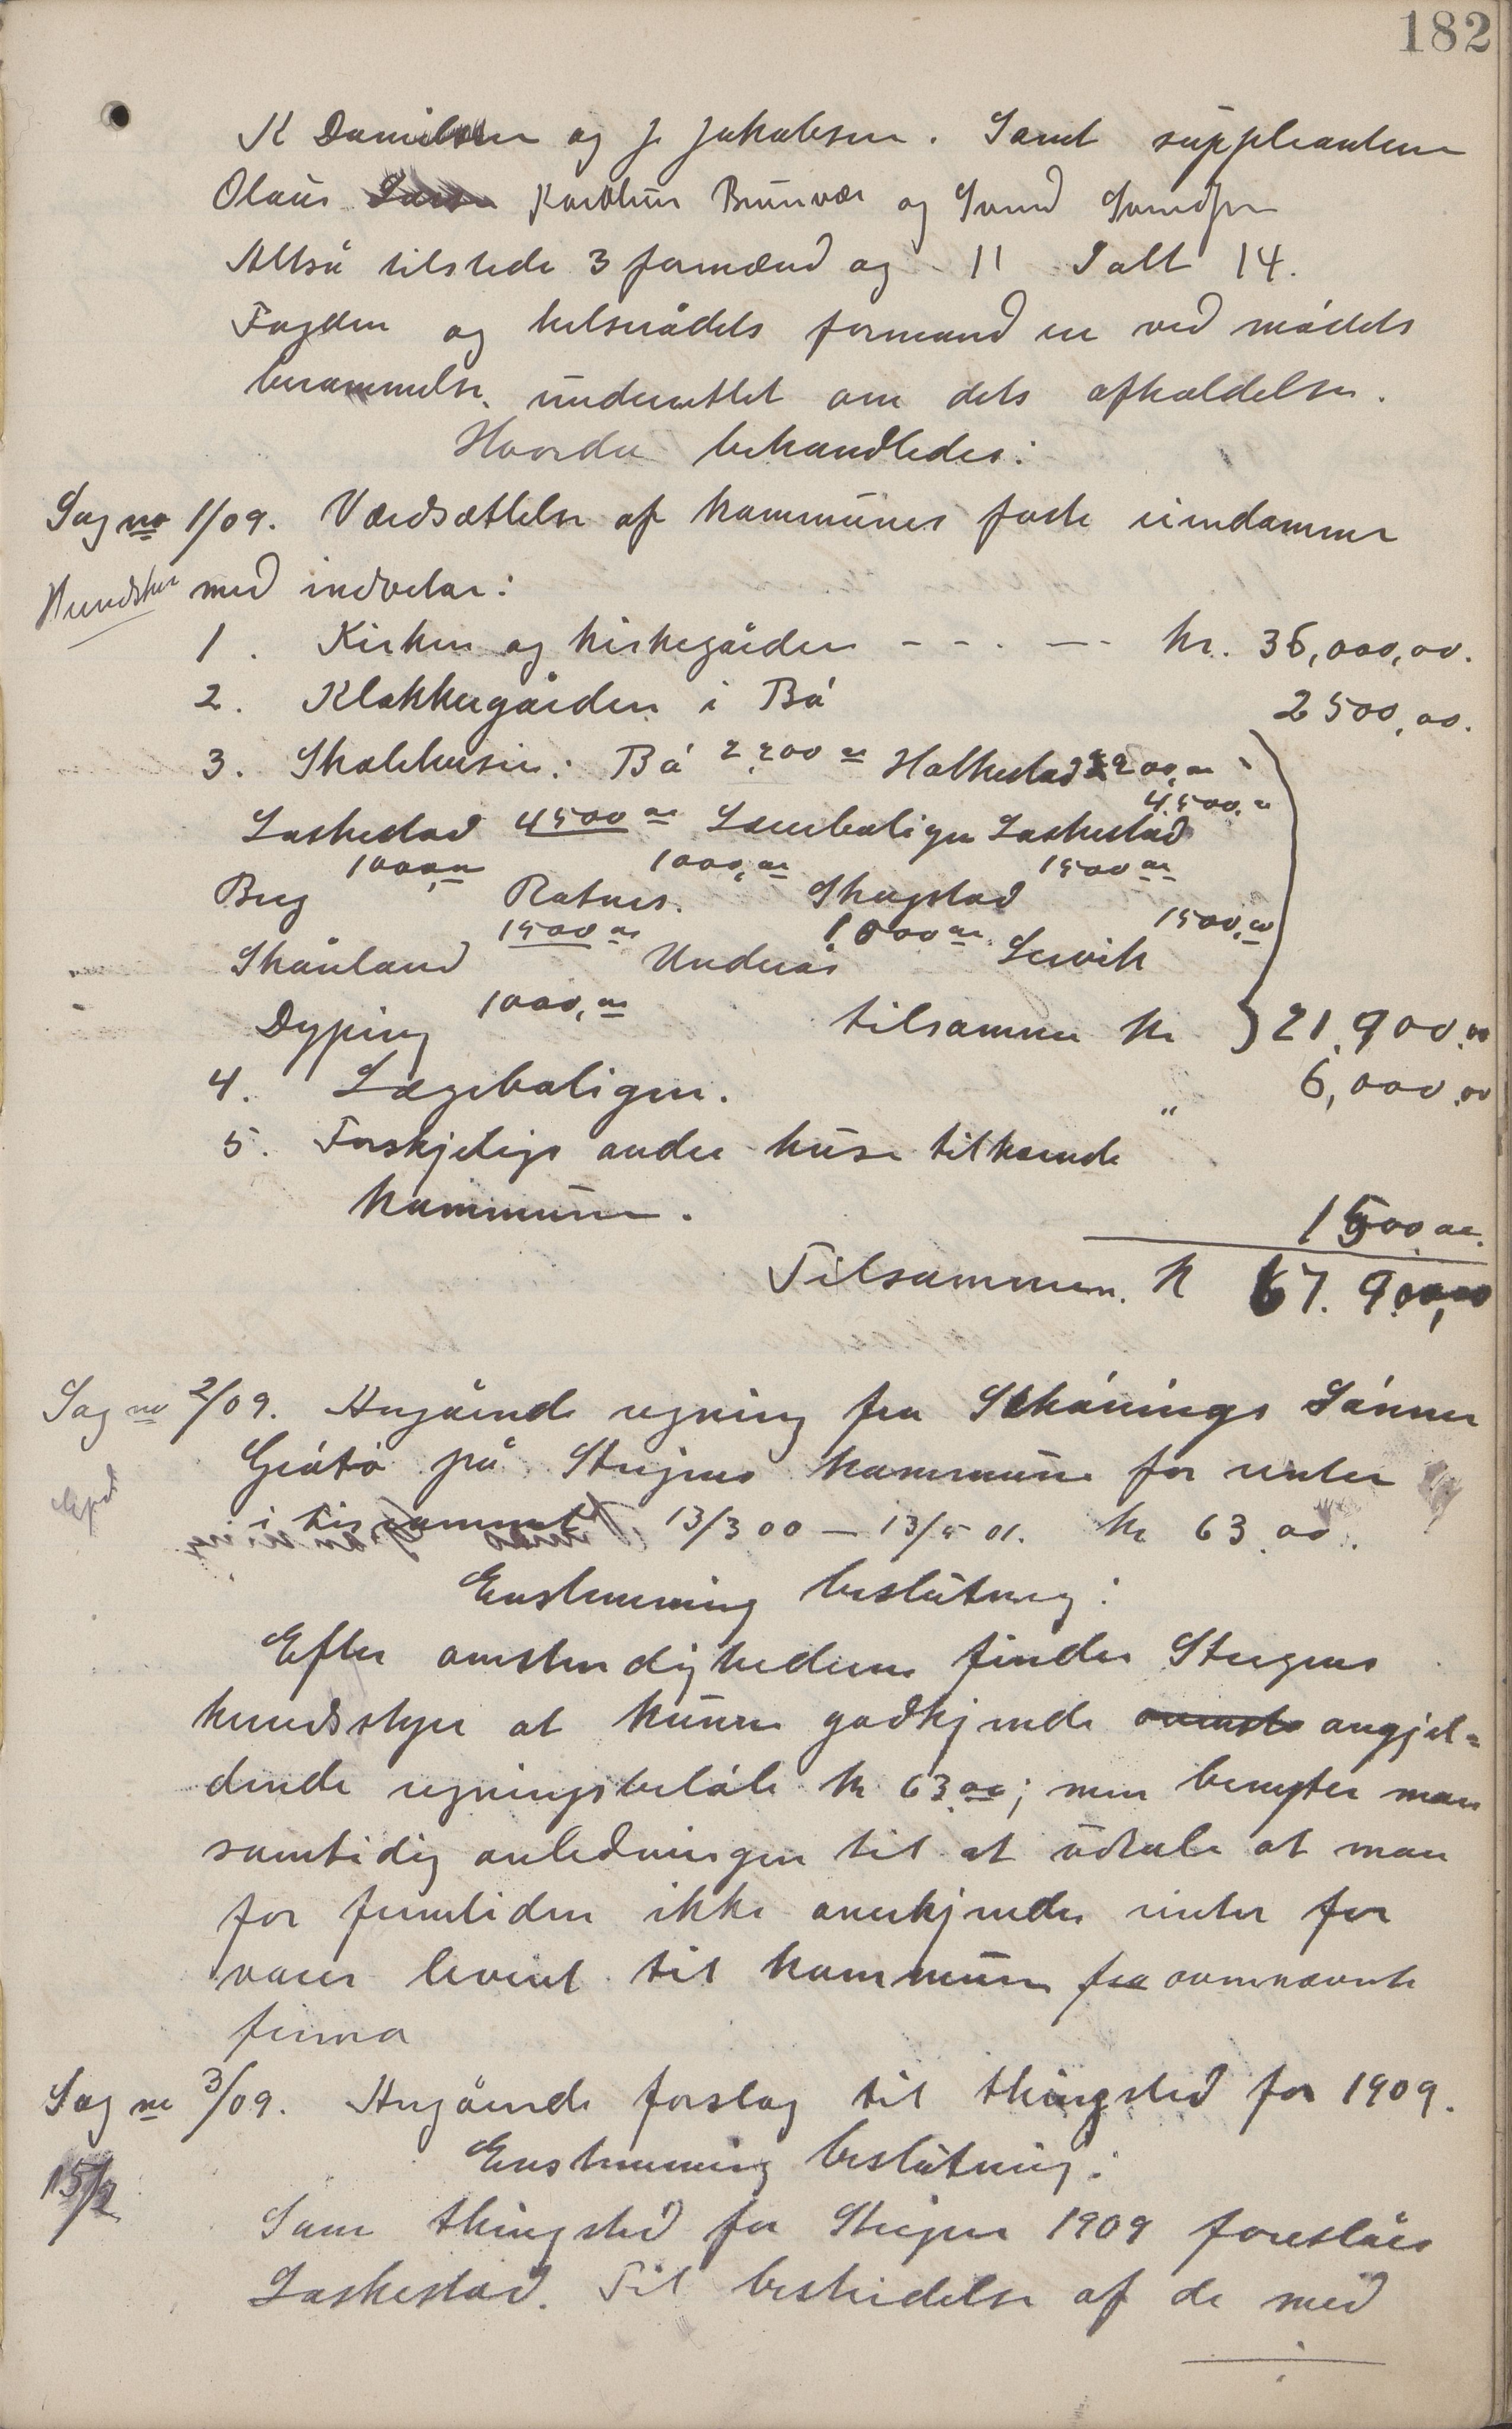 182
K Danielsen og J. Jakobsen. Samt suppleanterne
Olaus Karolius Brunvær og Svend Svendsen
Altså tilstede 3 formænd og 11 Ialt 14.
Fogden og helserådets formand er ved mødets
berammelse underrettet om dets afholdelse.
Hvorda behandledes:
Sag no 1/09. Værdsættelse af kommunes faste eiendomme
med indvelar:
1. Kirken og kirkegården - - . - - kr. 36,000,00.
2. Klokkergården i Bø 2500,00.
3. Skolehusene: Bø 2,200 00 Holkestad 2200,00
Laskestad 4500 00 Lærerboligen Laskestad 4,500,00
Breg 1000,00 Rotnes. 1000,00 Skogstad 1500 00
Skånland 1500 00 Underås 1,000 00 Leivik 1500,00
Dyping 1000,00 tilsammen kr 21,900,00
4. Lægeboligen. " 6,000,00
5. Forskjelige andre huse tilhørende
kommunen. 1500 00.
Tilsammen. K 67.900,00
Sag no 2/09. Angående regning fra Schønings Sønner
Grøtø på Steigens kommune for renter
i tidsrummet 13/3 00 — 13/5 01. kr 63.00.
Enstemmig beslutning:
Efter omstendighederne finder Steigens
herredsstyre at kunne godkjende angjel-
dende regningsbeløb kr 63.00; men benytter man
samtidig anledningen til at udtale at man
for fremtiden ikke anerkjender renter for
varer leveret til kommunen fra ovennævnte
firma
Sag no 3/09. Angående forslag til thingsted for 1909.
15/2
Enstemmig beslutning:
Som thingsted for Steigen 1909 foreslåes
Laskestad. Til bestridelse af de med